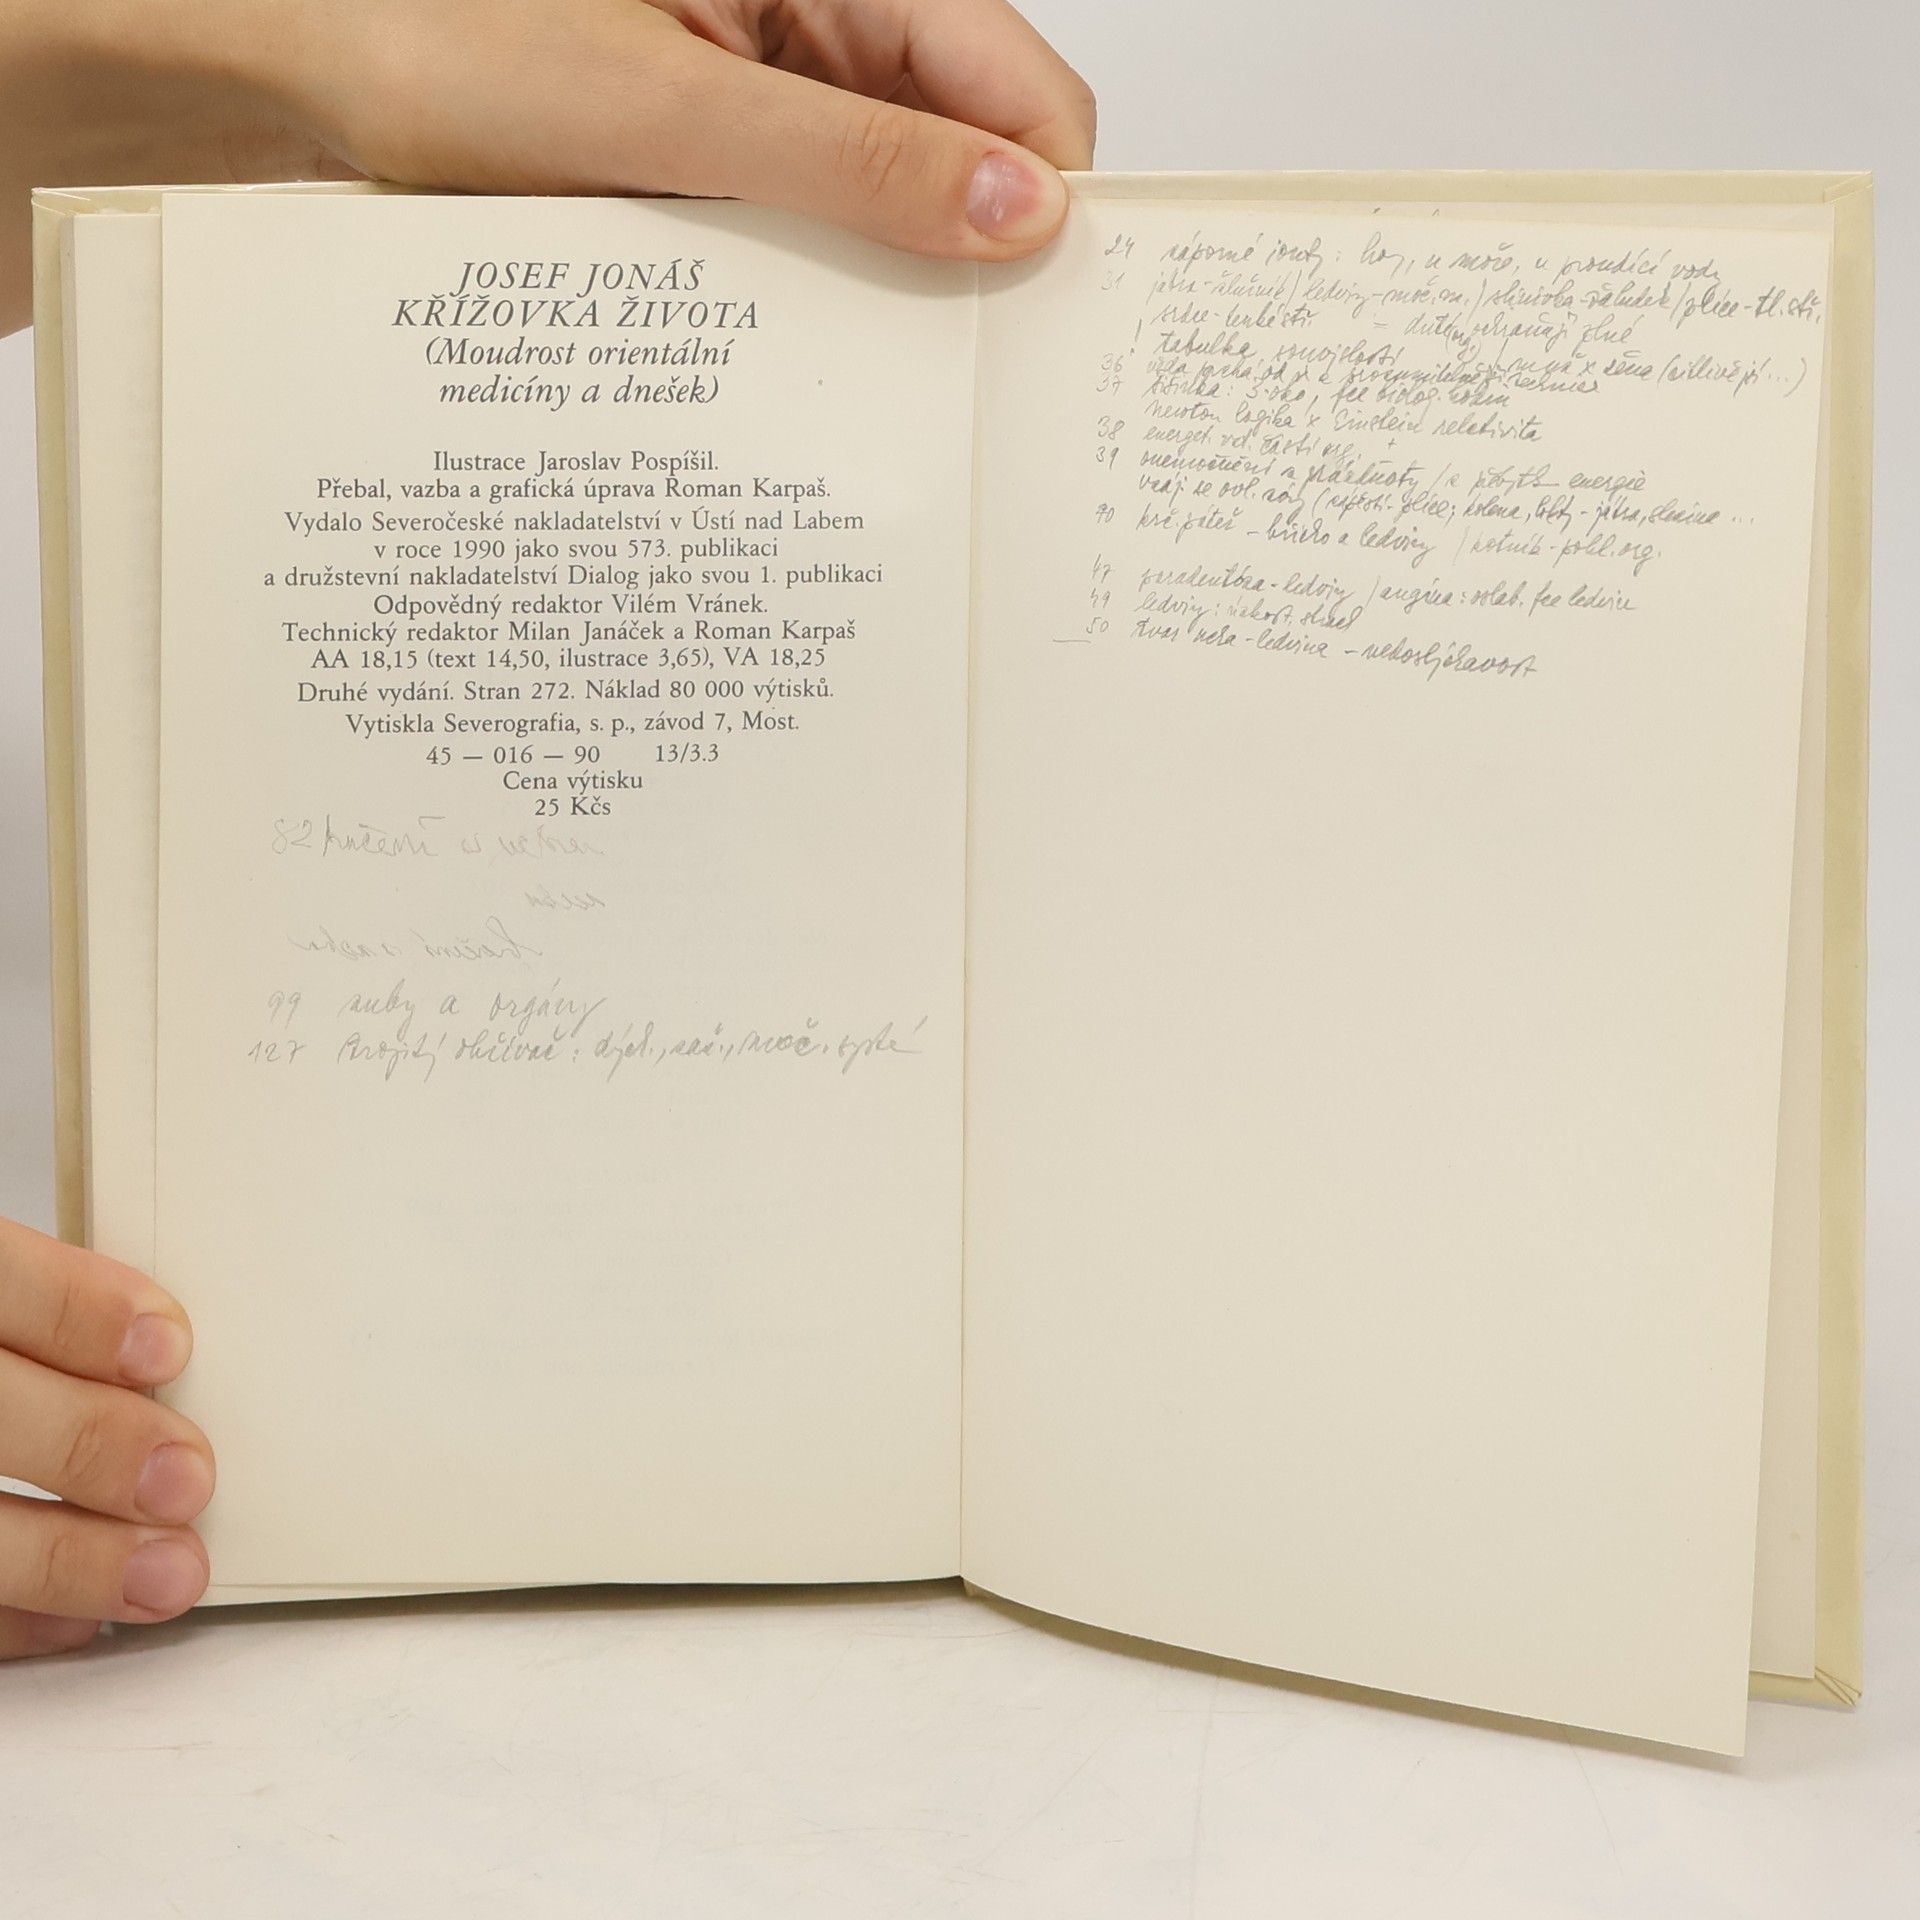 JOSEF JONÁŠ
KŘÍŽOVKA ŽIVOTA
(Moudrost orientální
medicíny a dnešek)
Ilustrace Jaroslav Pospíšil.
Přebal, vazba a grafická úprava Roman Karpaš.
Vydalo Severočeské nakladatelství v Ústí nad Labem
v roce 1990 jako svou 573. publikaci
a družstevní nakladatelství Dialog jako svou 1. publikaci
Odpovědný redaktor Vilém Vránek.
Technický redaktor Milan Janáček a Roman Karpaš
AA 18,15 (text 14,50, ilustrace 3,65), VA 18,25
Druhé vydání. Stran 272. Náklad 80 000 výtisků.
Vytiskla Severografia, s. p., závod 7, Most.
45 — 016 — 90 13/3.3
Cena výtisku
25 Kčs
82
99 zuby a orgány
127 trojitý ohřívač: dých., zaž., moč. systé
24 záporné ionty: hory, u moře, u proudící vody
31 játra-žlučník / ledviny-moč.m. / slinivka-žaludek / plíce-tl.stř.
srdce-tenké stř. = duté (org.) ochraňují plné
! tabulka souvislostí / muž x žena (citlivější...)
36
37
newton logika x Einstein relativita
38 energet. části org.
39 onemocnění z prázdnoty / z přebytk energie
zápěstí-plíce; kolena, lokty - játra, slezina ...
40 krč. páteř - břicho a ledviny / kotník - pohl. org.
47 paradentóza - ledviny / angína: oslab. fce ledvin
49 ledviny: úzkost, strach
50 tvar ucha - ledvina - nedoslýchavost